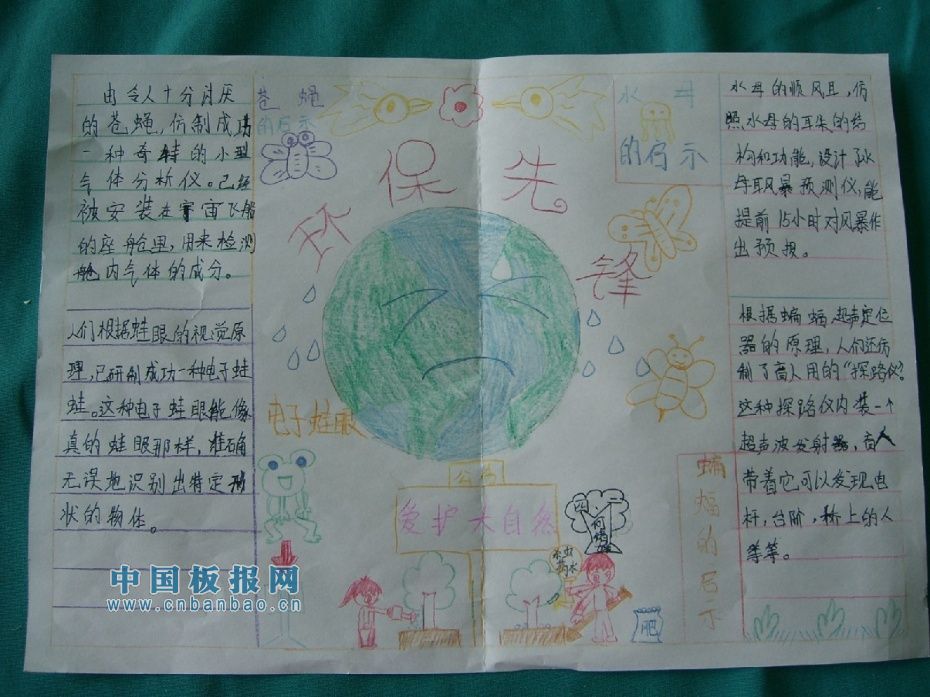 由令人十分讨厌
的苍蝇,仿制成功
一种奇特的小型
气体分析仪。已经
被安装在宇宙飞船
的座舱里,用来检测
舱内气体的成分。
人们根据蛙眼的视觉原
理,已研制成功一种电子蛙
蛙。这种电子蛙眼能像
真的蛙眼那样,准确
无误地识别出特定形
状的物体。
苍蝇
的启示
环保先锋
电子蛙眼
公告
爱护大自然
肥
水母
的启示
水母的顺风耳,仿
照水母的耳朵的结
构和功能,设计了水
母耳风暴预测仪,能
提前15小时对风暴作
出预报。
根据蝙蝠超声定位
器的原理,人们还仿
制了盲人用的“探路仪”。
这种探路仪内装一个
超声波发射器,盲人
带着它可以发现电
杆,台阶,桥上的人
等等。
蝙蝠的启示
中国板报网
www.cnbanbao.cn